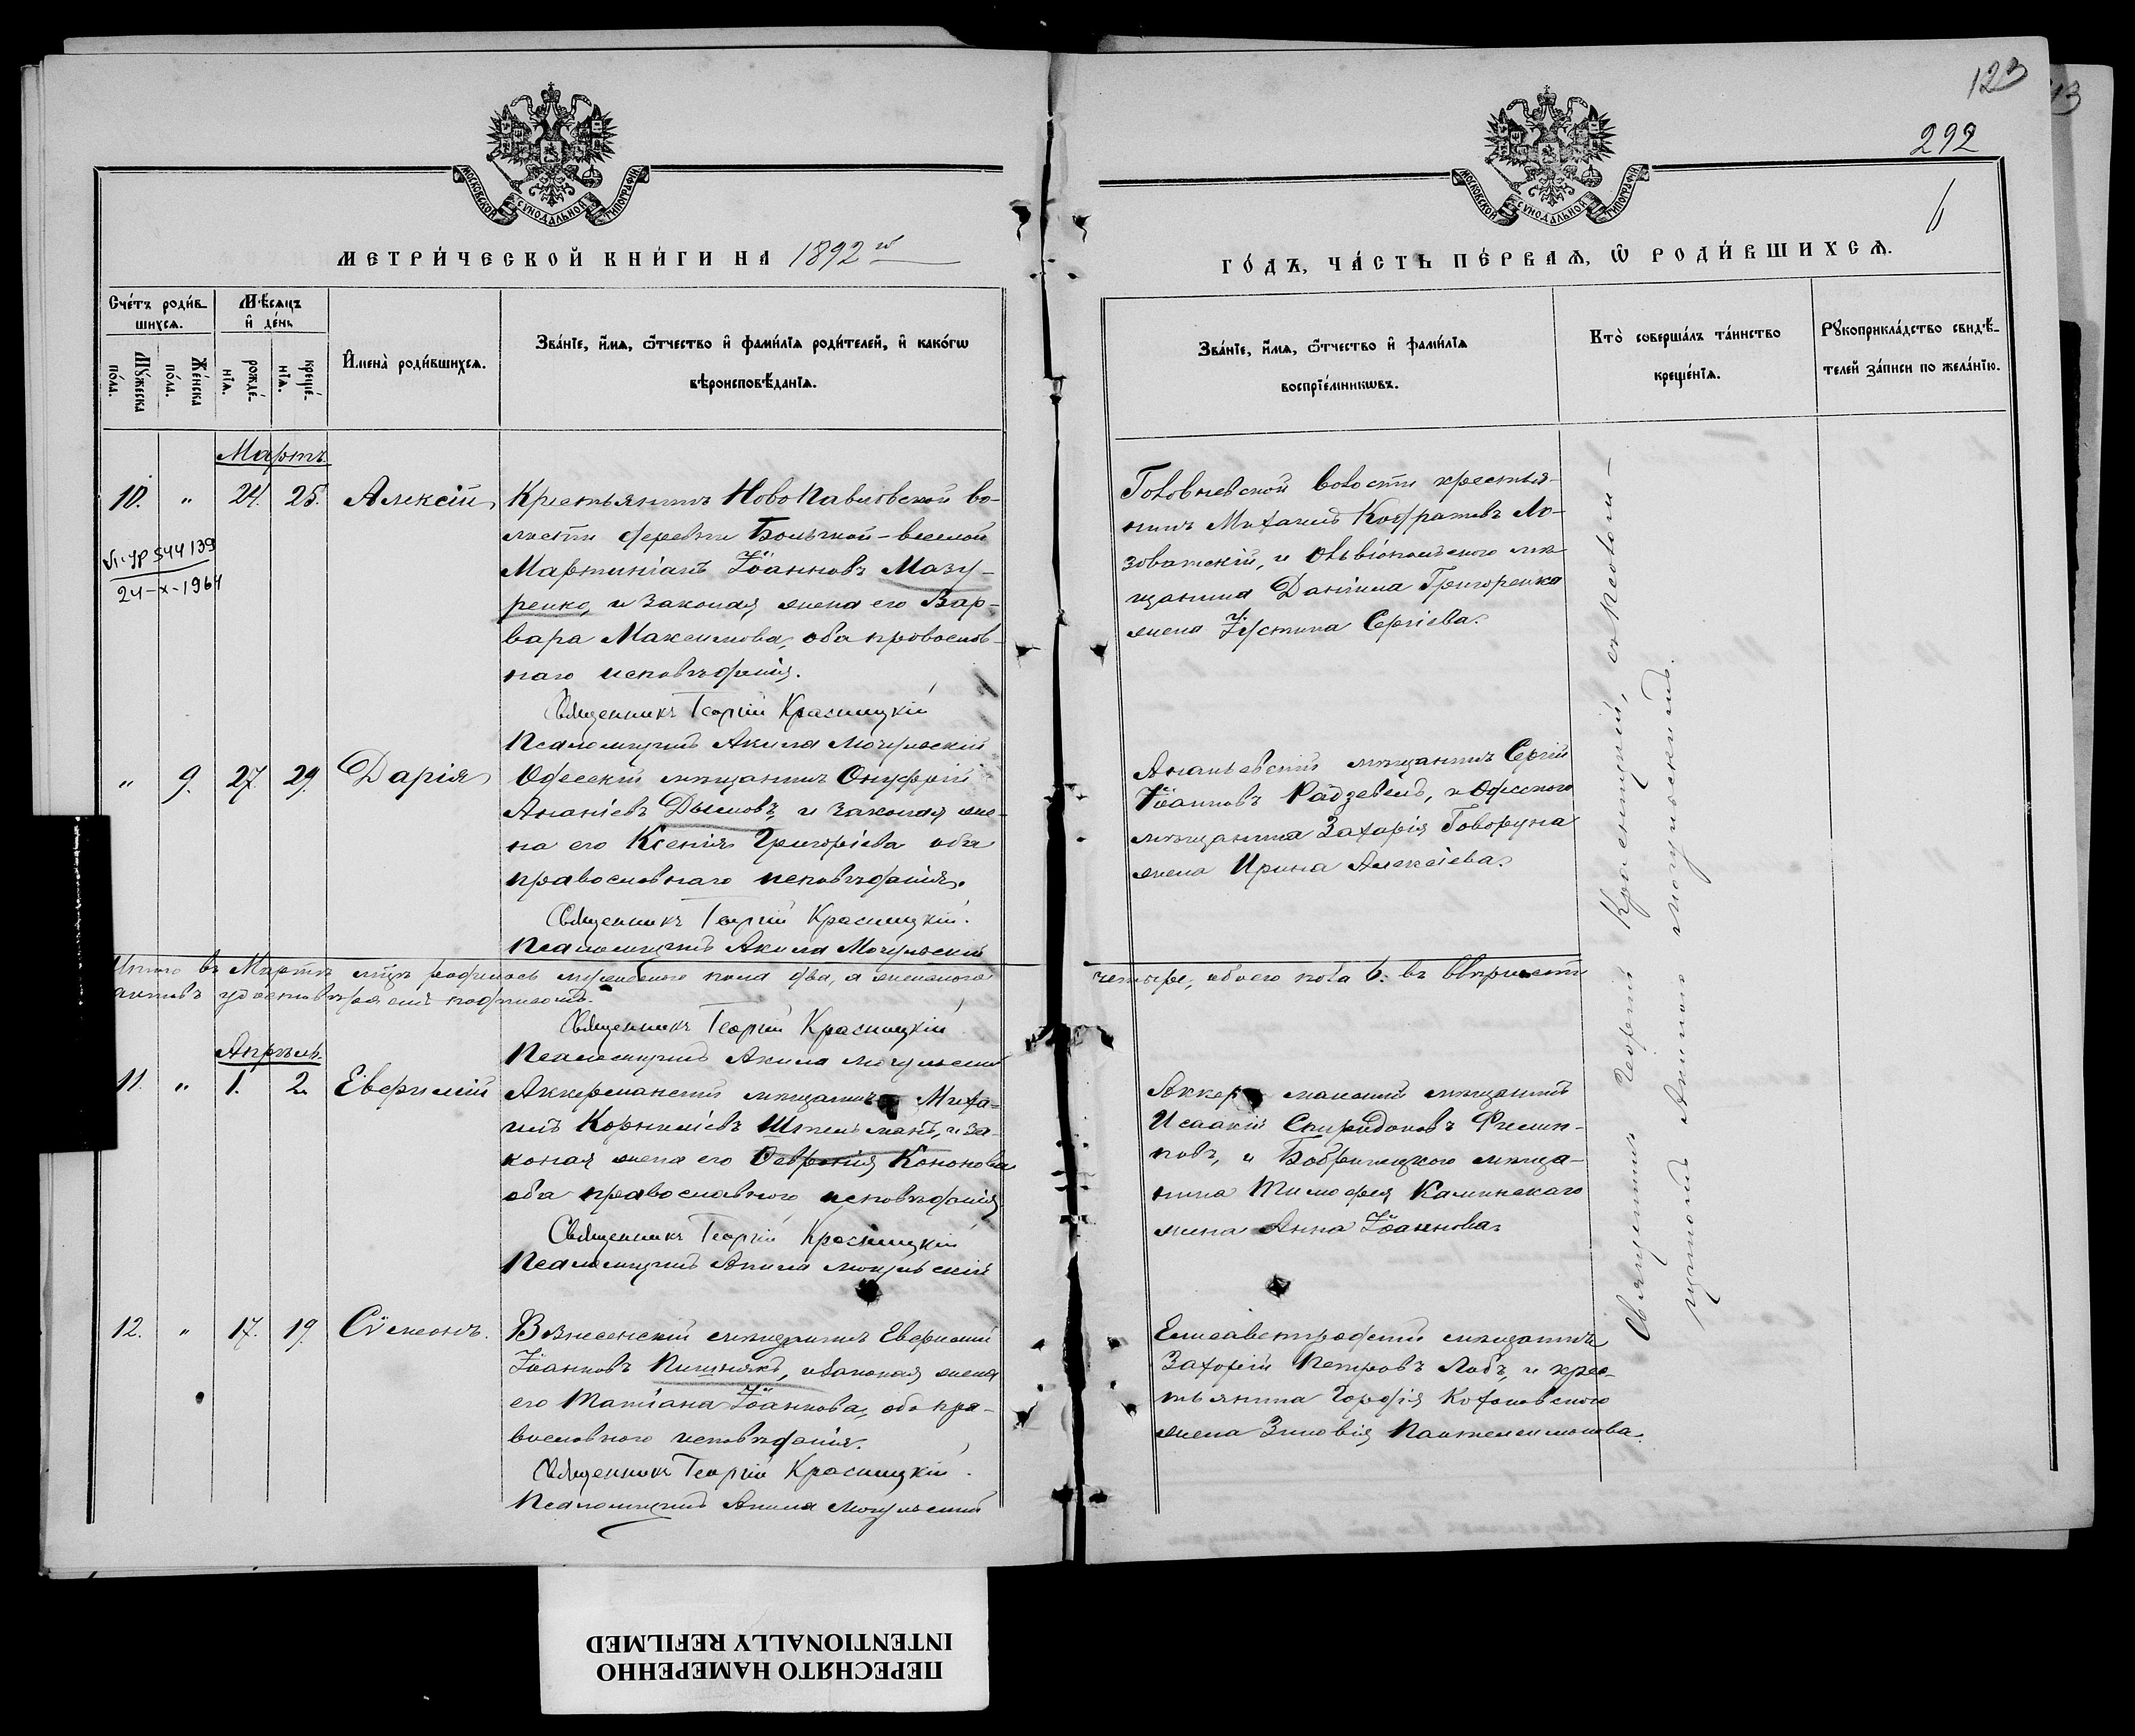 123
292
6
МОСКОВСКОЙ СѴНОДАЛЬНОЙ ТИПОГРАФІИ
МОСКОВСКОЙ СѴНОДАЛЬНОЙ ТИПОГРАФІИ
МЕТРИ́ЧЕСКОЙ КНИ́ГИ НА 1892 го
ГО́ДЪ, ЧА́СТЬ ПЕ́РВАѦ, Ѡ РОДИ́ВШИХСѦ.
Сче́тъ роди́в-
шихсѧ.
Мѣ́сяцъ
и҆ де́нь
Мꙋ́жеска
по́ла.
Же́нска
по́ла.
рожде́-
нїѧ.
креще́-
нїѧ.
И҆мена̀ роди́вшихсѧ.
Зва́нїе, и҆́мѧ, ѻ҆́тчество и҆ фами́лїѧ роди́телей, и҆ како́гѡ
вѣроисповѣ́данїѧ.
Зва́нїе, и҆́мѧ, ѻ҆́тчество и҆ фами́лїѧ
воспрїе́мникѡвъ.
Кто̀ соверша́лъ та́инство
креще́нїѧ.
Рꙋкоприкла́дство свидѣ́-
телей за́писи по жела́нїю.
Мартъ.
10. " 24. 25. Алексій
544139
24-X-1964
Крестьянинъ Новопавловской во-
лости деревни
Мартиніанъ Іоанновъ Мазу-
ренко, и законая жена его Вар-
вара Максимова, оба православ-
наго исповѣданія.
Священникъ Георгій Красницкій
Псаломщикъ Акила Могульскій
Головневской волости крестья-
нинъ Михаилъ Кодратовъ Ло-
зоватскій, и Ольвіопольскаго мѣ-
щанина Даніила Григоренка
жена Іустина Сергіева.
" 9. 27. 29. Дарія
Одесскій мѣщанинъ Онуфрій
Ананіевъ Дымовъ, и законая же-
на его Ксенія Григоріева оба
православнаго исповѣданія.
Священникъ Георгій Красницкій.
Псаломщикъ Акила Могульскій
Ананьевскій мѣщанинъ Сергій
Іоанновъ Радзевилъ, и Одесскаго
мѣщанина Захарія Говоруна
жена Ирина Алексіева.
Итого въ Мартѣ мцѣ родилось мужескаго пола два, а женскаго
четыре, обоего пола 6. въ вѣрности
актовъ удостовѣряемъ подписомъ.
Священникъ Георгій Красницкій
Псаломщикъ Акила Могульскій
Апрѣль.
11. " 1. 2. Евфимій
Аккерманскій мѣщанинъ Миха-
илъ Корниліевъ Штельмахъ, и за-
коная жена его Февронія Кононова
оба православнаго исповѣданія
Священникъ Георгій Красницкій
Псаломщикъ Акила Могульскій
Аккерманскій мѣщанинъ
Исаакій Спиридоновъ Филип-
повъ, и Бобринецкаго мѣща-
нина Тимофея Каминскаго
жена Анна Іоаннова.
12. " 17. 19. Сѵмеонъ.
Вознесенскій мѣщанинъ Евфимій
Іоанновъ Пишнякъ, и законая жена
его Татіана Іоаннова, оба пра-
вославнаго исповѣданія.
Священникъ Георгій Красницкій.
Псаломщикъ Акила Могульскій
Елисаветградскій мѣщанинъ
Захарій Петровъ Лобъ, и крес-
тьянина Гордія Кохановскаго
жена Зиновія Пантелеимонова.
Священникъ Георгій Красницкій, съ псалом-
щикомъ Акилою Могульскимъ.
ПЕРЕСНЯТО НАМЕРЕННО
INTENTIONALLY REFILMED